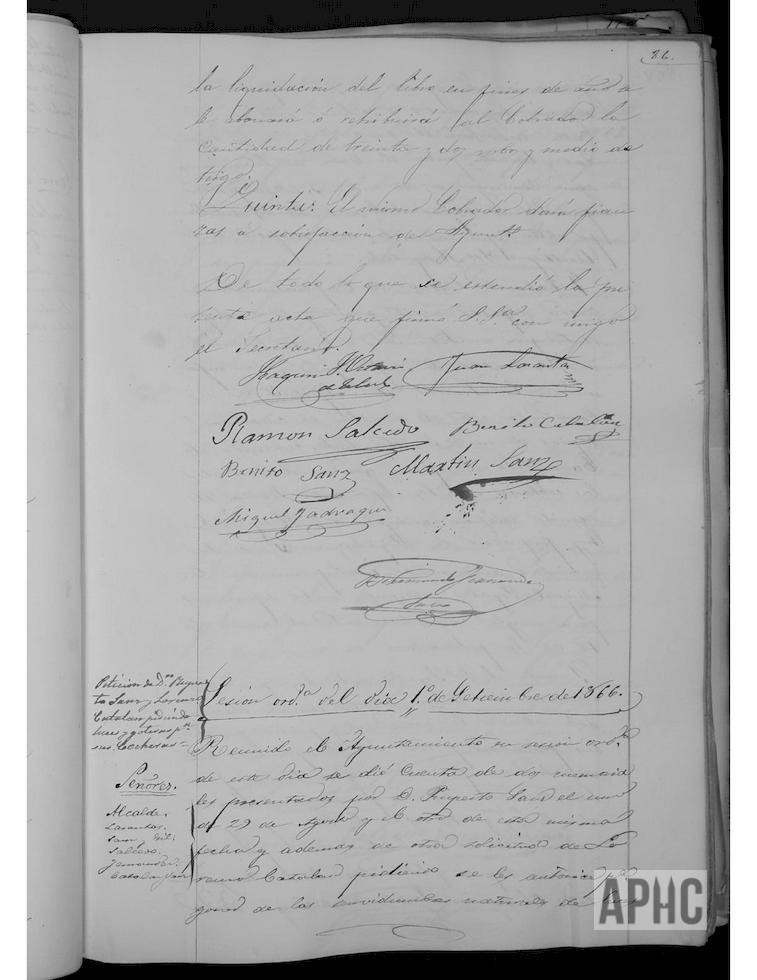 86.
la liquidación del libro en fines de año se
le abonará ó retribuirá al Cobrador la
Cantidad de treinta y dos y medio de
trigo.
Quinta: El mismo Cobrador dará fian
zas á satisfacción del Ayunt.º
De todo lo que se estendió la pre
sente acta que firmó S.Sª con migo
el Secretario.
Joaquin
Juan Lavantas
Ramon Salcedo Benito Catalan
Benito Sanz Martin Sanz
Miguel Jadraque
Petición de D.ⁿ Ruper
to Sanz y Lorenzo
Catalan pidiendo
luces y goteras pª
sus Cocheras=
Sesión ordª del día 1º de Setiembre de 1866.
Señores.
Alcalde.
Lavantas.
Sanz
Salcedo.
Catalan
Reunido el Ayuntamiento en sesión ordª
de este dia se dió Cuenta de dos memoria
les presentados por D. Ruperto Sanz el uno
de 29 de Agosto y el otro de esta misma
fecha y ademas de otra solicitud de Lo
renzo Catalan pidiendo se les autorice pª
gozar de las servidumbres naturales de luces
APHC